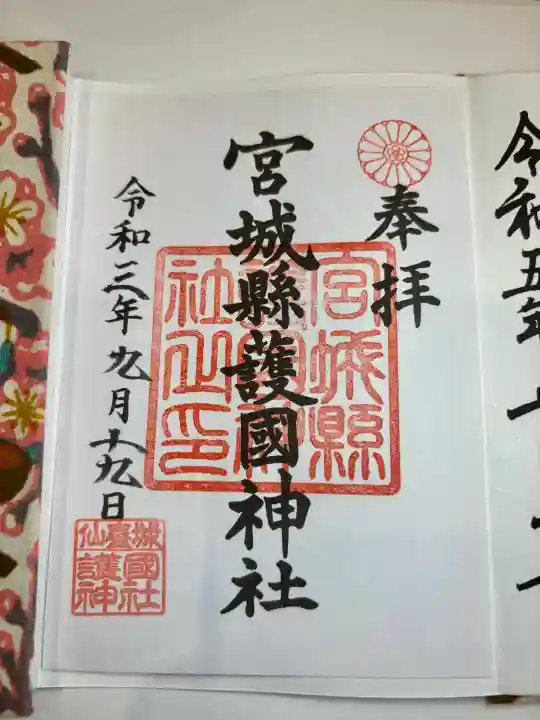 奉拝
宮城縣護國神社
宮城縣
社之印
令和三年九月十九日
城國社
仙臺護神
令和五年